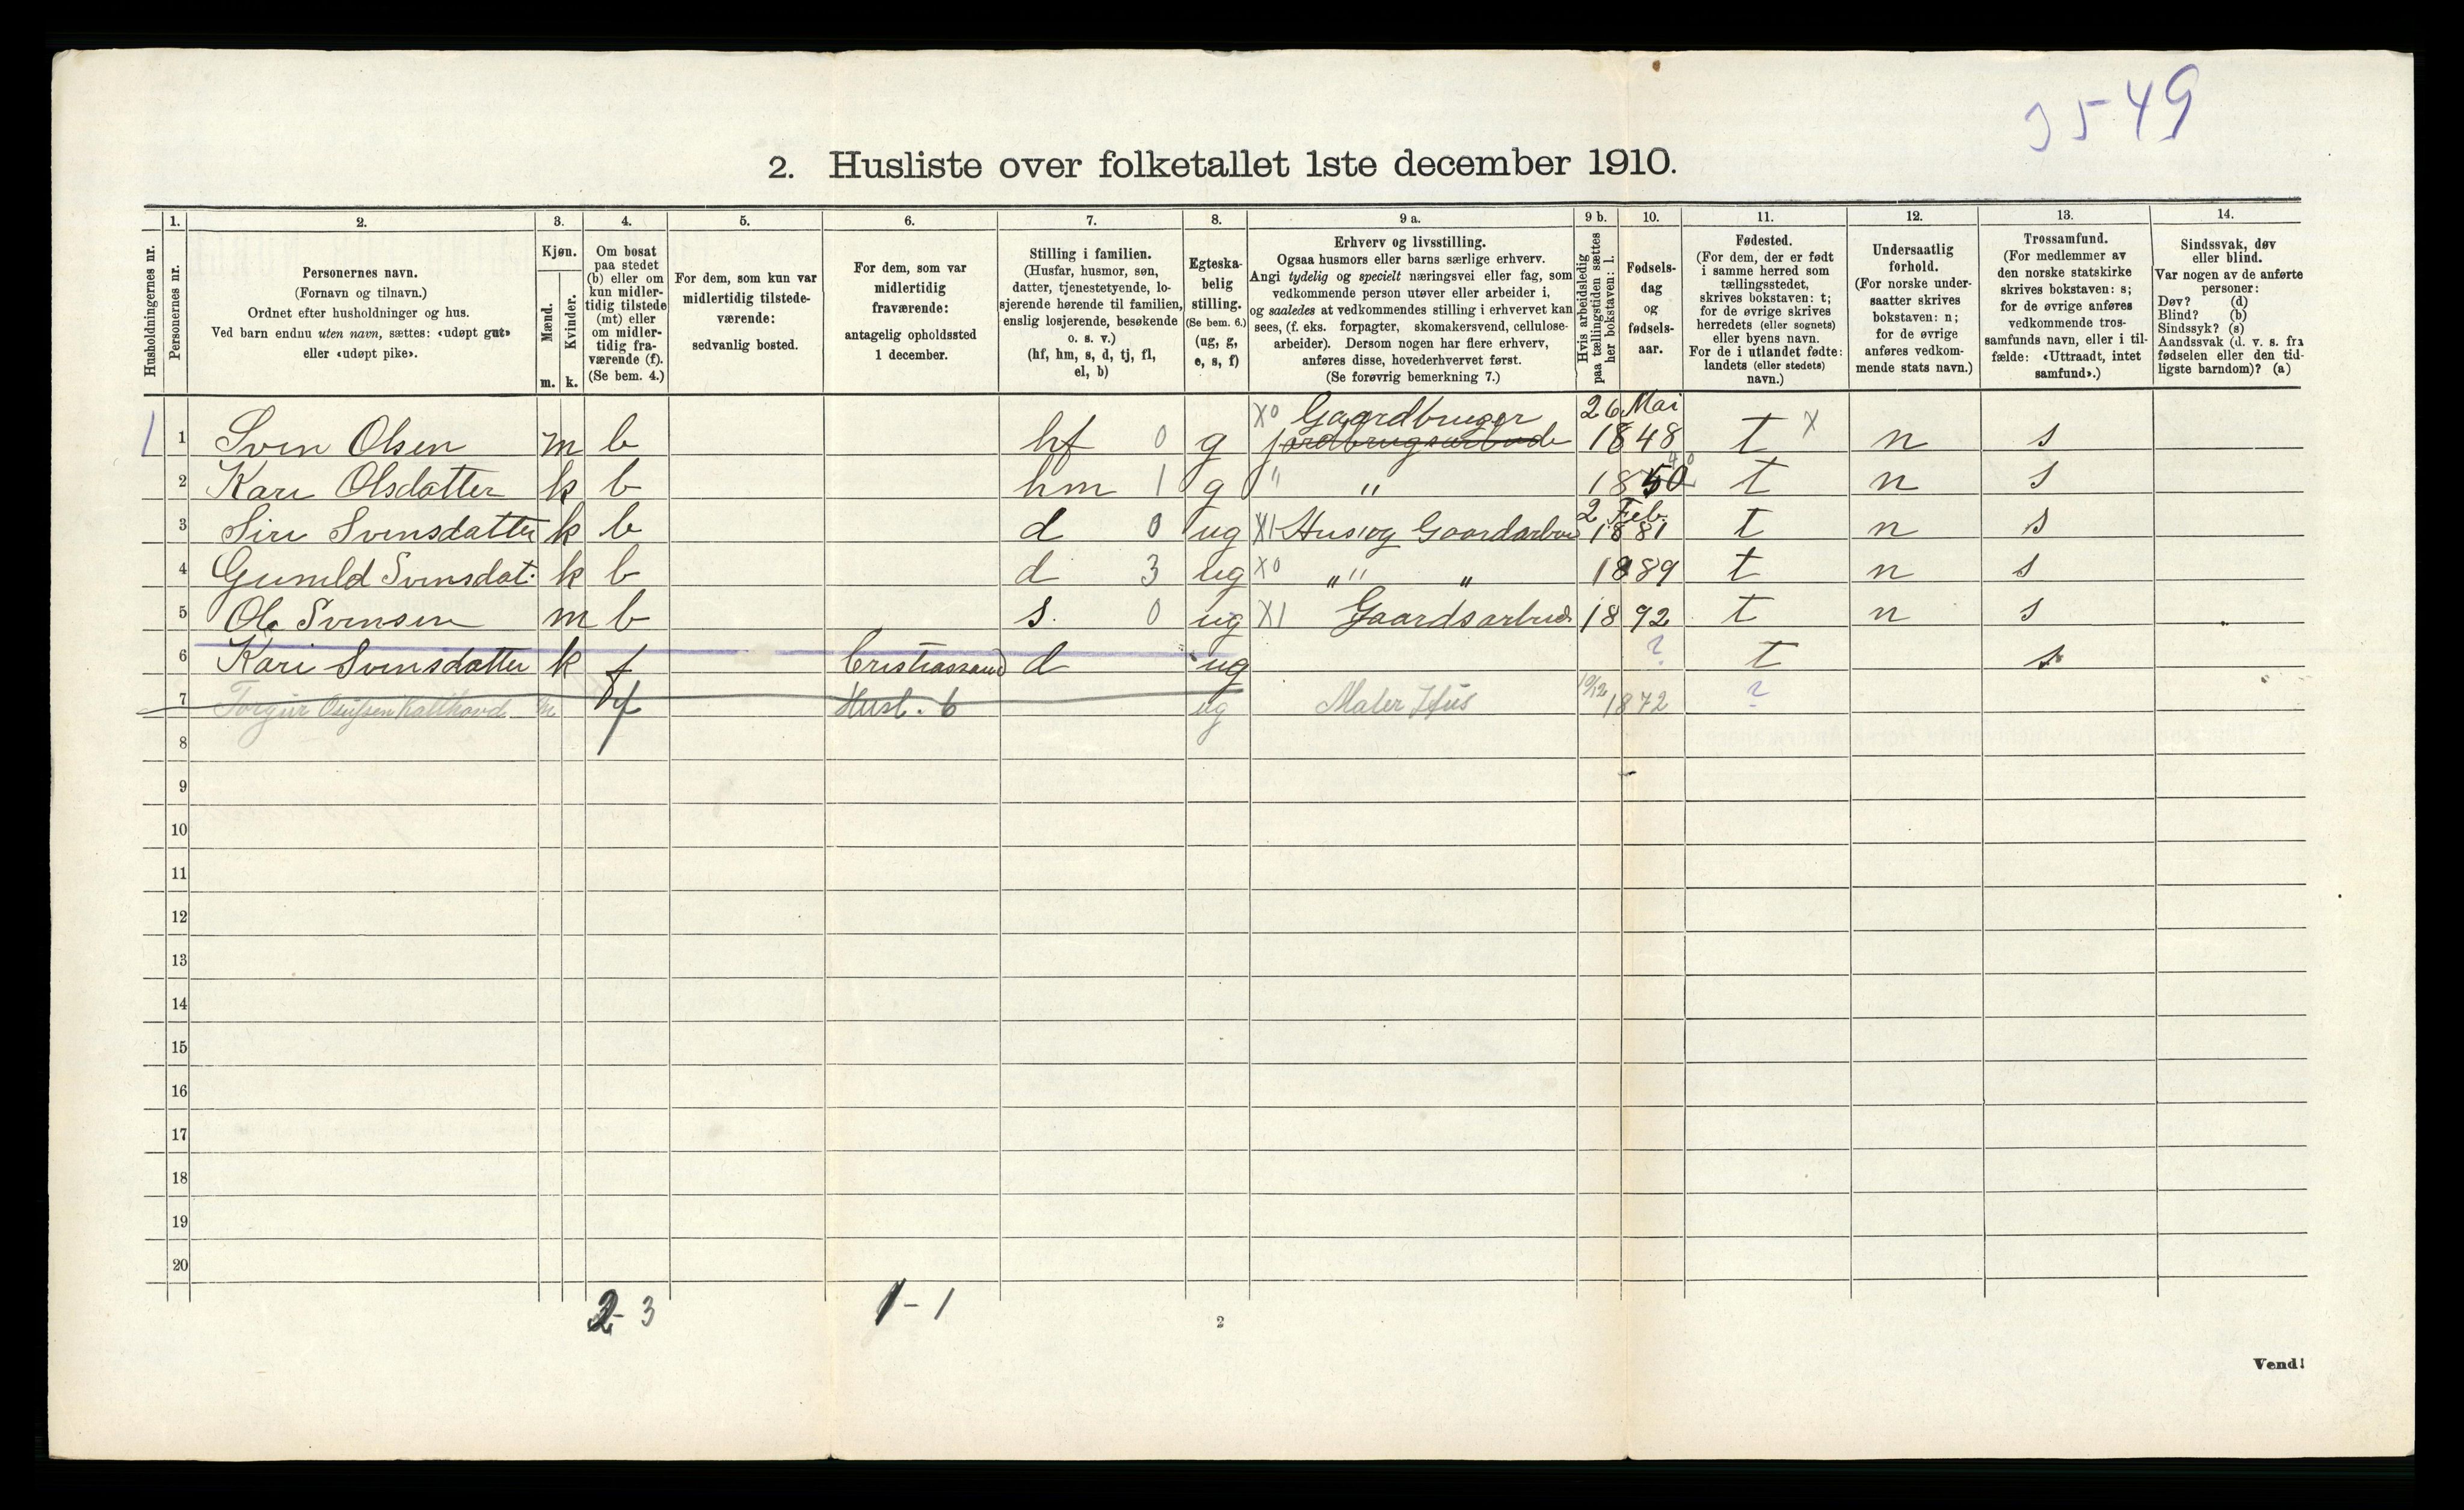 3549
2. Husliste over folketallet 1ste december 1910.
Husholdningernes nr.
1.
Personernes nr.
2.
Personernes navn.
(Fornavn og tilnavn.)
Ordnet efter husholdninger og hus.
Ved barn endnu uten navn, sættes: «udøpt gut»
eller «udøpt pike».
3.
Kjøn.
Mænd.
Kvinder.
m. k.
4.
Om bosat
paa stedet
(b) eller om
kun midler-
tidig tilstede
(mt) eller
om midler-
tidig fra-
værende (f).
(Se bem. 4.)
5.
For dem, som kun var
midlertidig tilstede-
værende:
sedvanlig bosted.
6.
For dem, som var
midlertidig
fraværende:
antagelig opholdssted
1 december.
7.
Stilling i familien.
(Husfar, husmor, søn,
datter, tjenestetyende, lo-
sjerende hørende til familien,
enslig losjerende, besøkende
o. s. v.)
(hf, hm, s, d, tj, fl,
el, b)
8.
Egteska-
belig
stilling.
(Se bem. 6.)
(ug, g,
e, s, f)
9 a.
Erhverv og livsstilling.
Ogsaa husmors eller barns særlige erhverv.
Angi tydelig og specielt næringsvei eller fag, som
vedkommende person utøver eller arbeider i,
og saaledes at vedkommendes stilling i erhvervet kan
sees, (f. eks. forpagter, skomakersvend, cellulose-
arbeider). Dersom nogen har flere erhverv,
anføres disse, hovederhvervet først.
(Se forøvrig bemerkning 7.)
9 b.
Hvis arbeidsledig
paa tællingstiden sættes
her bokstaven: l.
10.
Fødsels-
dag
og
fødsels-
aar.
11.
Fødested.
(For dem, der er født
i samme herred som
tællingsstedet,
skrives bokstaven: t;
for de øvrige skrives
herredets (eller sognets)
eller byens navn.
For de i utlandet fødte:
landets (eller stedets)
navn.)
12.
Undersaatlig
forhold.
(For norske under-
saatter skrives
bokstaven: n;
for de øvrige
anføres vedkom-
mende stats navn.)
13.
Trossamfund.
(For medlemmer av
den norske statskirke
skrives bokstaven: s;
for de øvrige anføres
vedkommende tros-
samfunds navn, eller i til-
fælde: «Uttraadt, intet
samfund».)
14.
Sindssvak, døv
eller blind.
Var nogen av de anførte
personer:
Døv? (d)
Blind? (b)
Sindssyk? (s)
Aandssvak (d. v. s. fra
fødselen eller den tid-
ligste barndom)? (a)
x0 Gaardbruger 26 Mai
1 1 Sven Olsen m b hf 0 g jordbrugsarbeide 1848 t x n s
2 Kari Olsdatter k b hm 1 g " " 1850 40 t n s
2 Feb.
3 Siri Svensdatter k b d 0 ug x1 Hus og Gaardarbei 1881 t n s
4 Gunild Svensdat: k b d 3 ug x0 " " " 1889 t n s
5 Ole Svensen m b s. 0 ug x1 Gaardsarbeid 1892 t n s
6 Kari Svensdatter k f Cristiassand d ug ? t s
7 Torgeir m f Husl. 6 ug Maler Hus 10/12 1872 ?
8
9
10
11
12
13
14
15
16
17
18
19
20
2-3 1-1
2
Vend!